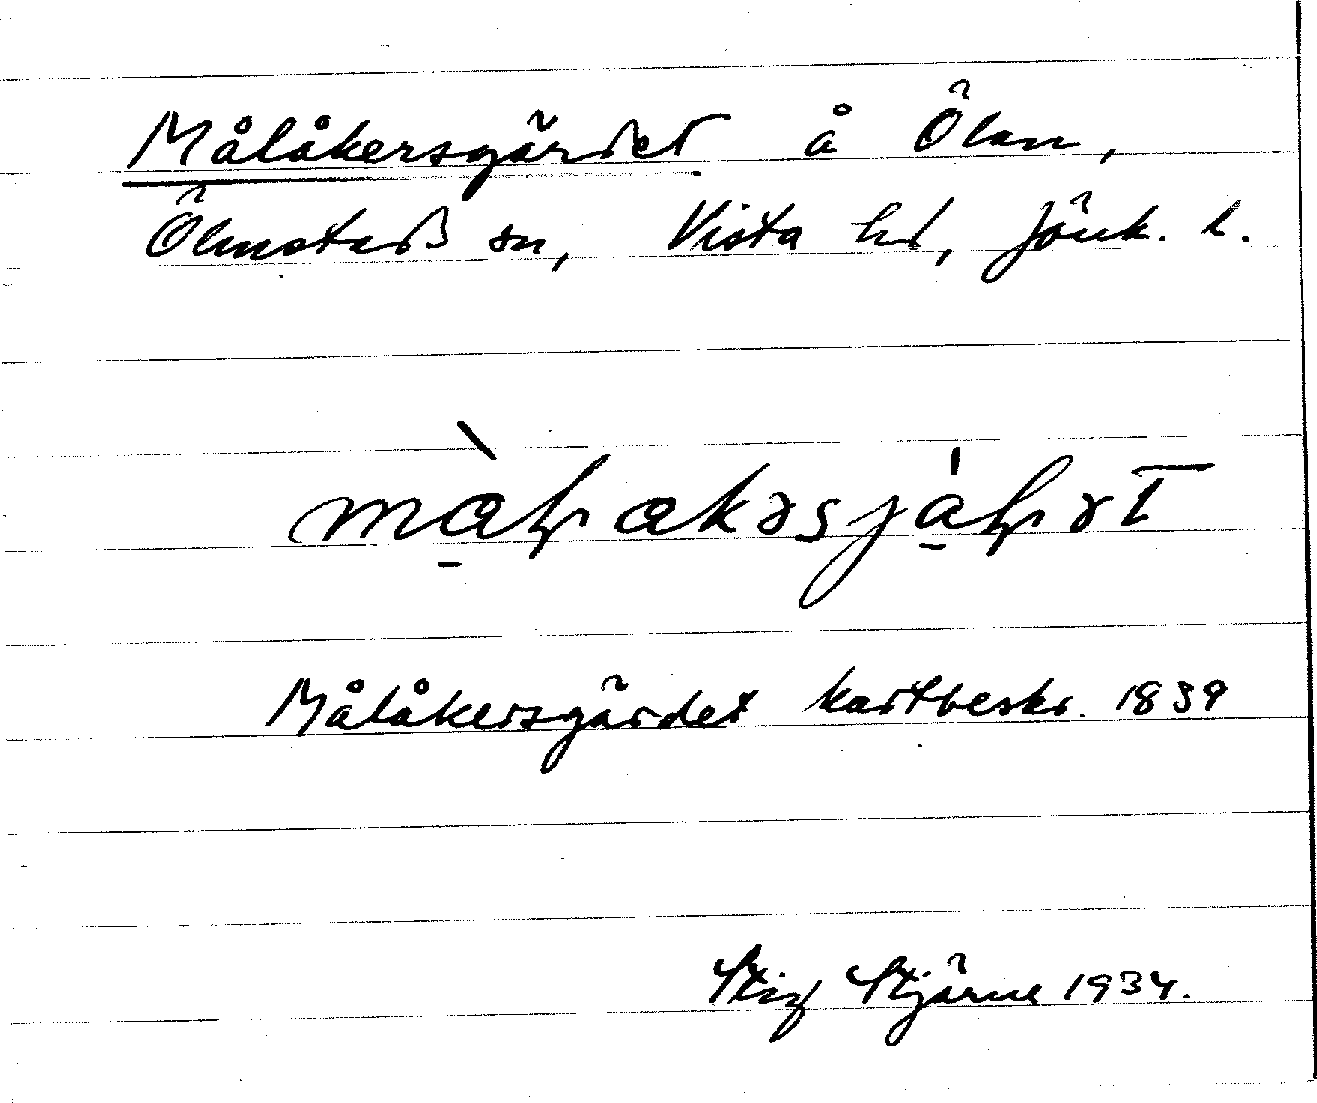 Målåkersgärdet å Ölan,
Ölmstads sn, Vista hd, Jönk. l.
Målåkersgärdet kartbeskr. 1839
Stig Stjärne 1934.